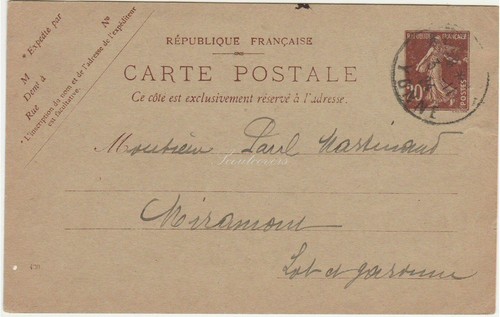 * Expédié par
M
Demt à
Rue
No
* L'inscription du nom et de l'adresse de l'expéditeur
est facultative.
RÉPUBLIQUE FRANÇAISE
CARTE POSTALE
Ce côté est exclusivement réservé à l'adresse.
20
POSTES
Monsieur Paul Martinaud
Miramont
Lot et Garonne